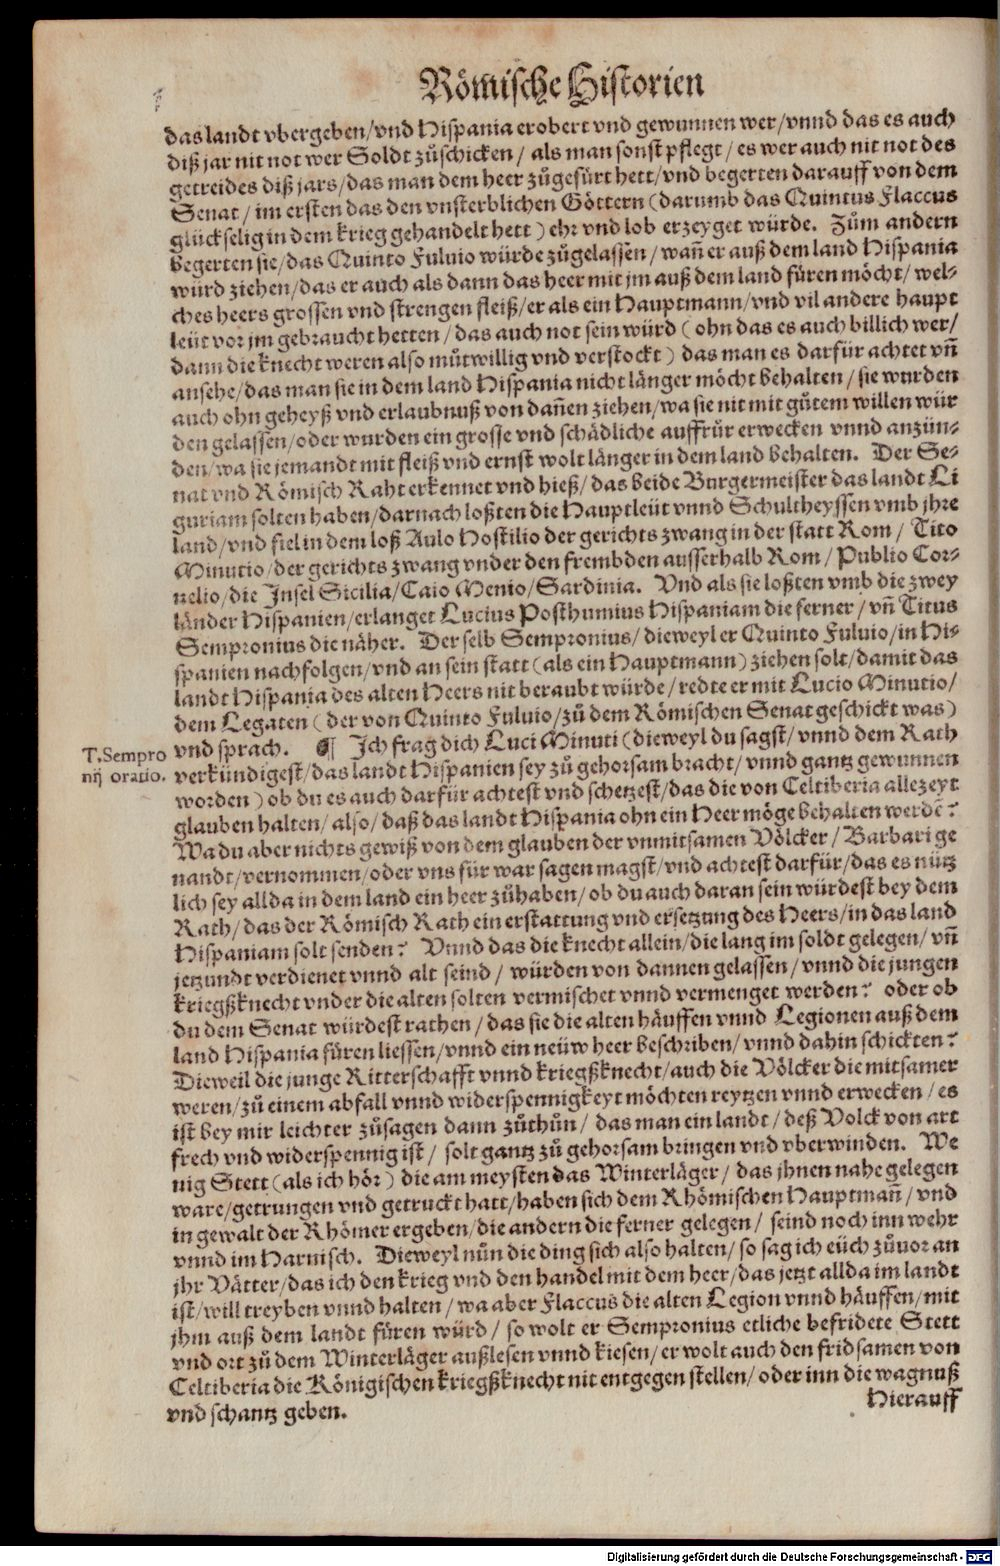 Römische Historien
das landt vbergeben/vnd Hispania erobert vnd gewunnen wer/vnnd das es auch
diß jar nit not wer Soldt zůschicken/ als man sonst pflegt/es wer auch nit not des
getreides diß jars/das man dem heer zůgefürt hett/vnd begerten darauff von dem
Senat/im ersten das den vnsterblichen Göttern (darumb das Quintus Flaccus
glückselig in dem krieg gehandelt hett) ehr vnd lob erzeyget würde. Zům andern
begerten sie/das Quinto Fuluio würde zůgelassen/wañ er auß dem land Hispania
würd ziehen/das er auch als dann das heer mit jm auß dem land füren möcht/wel-
ches heers grossen vnd strengen fleiß/er als ein Hauptmann/vnd vil andere haupt
leüt vor jm gebraucht hetten/das auch not sein würd (ohn das es auch billich wer/
dann die knecht weren also můtwillig vnd verstockt) das man es darfür achtet vñ
ansehe/das man sie in dem land Hispania nicht länger möcht behalten/sie wurden
auch ohn geheyß vnd erlaubnuß von dañen ziehen/wa sie nit mit gůtem willen wür
den gelassen/oder wurden ein grosse vnd schädliche auffrůr erwecken vnnd anzün-
den/wa sie jemandt mit fleiß vnd ernst wolt länger in dem land behalten. Der Se-
nat vnd Römisch Raht erkennet vnd hieß/das beide Burgermeister das landt Li
guriam solten haben/darnach loßten die Hauptleüt vnnd Schultheyssen vmb jhre
land/vnd fiel in dem loß Aulo Hostilio der gerichts zwang in der statt Rom/ Tito
Minutio/der gerichts zwang vnder den frembden ausserhalb Rom/Publio Cor-
nelio/die Jnsel Sicilia/Caio Menio/Sardinia. Vnd als sie loßten vmb die zwey
länder Hispanien/erlanget Lucius Posthumius Hispaniam die ferner/vñ Titus
Sempronius die näher. Der selb Sempronius/dieweyl er Quinto Fuluio/in Hi-
spanien nachfolgen/vnd an sein statt (als ein Hauptmann) ziehen solt/damit das
landt Hispania des alten Heers nit beraubt würde/redte er mit Lucio Minutio/
dem Legaten (der von Quinto Fuluio/zů dem Römischen Senat geschickt was)
T.Sempro
nij oratio.
vnd sprach. ¶ Jch frag dich Luci Minuti (dieweyl du sagst/vnnd dem Rath
verkündigest/das landt Hispanien sey zů gehorsam bracht/vnnd gantz gewunnen
worden) ob du es auch darfür achtest vnd schetzest/das die von Celtiberia allezeyt
glauben halten/also/daß das landt Hispania ohn ein Heer möge behalten werdẽ?
Wa du aber nichts gewiß von dem glauben der vnmitsamen Völcker/Barbari ge
nandt/vernommen/oder vns für war sagen magst/vnd achtest darfür/das es nütz
lich sey allda in dem land ein heer zůhaben/ob du auch daran sein würdest bey dem
Rath/das der Römisch Rath ein erstattung vnd ersetzung des Heers/in das land
Hispaniam solt senden? Vnnd das die knecht allein/die lang im soldt gelegen/vñ
jetzundt verdienet vnnd alt seind/würden von dannen gelassen/vnnd die jungen
kriegßknecht vnder die alten solten vermischet vnnd vermenget werden? oder ob
du dem Senat würdest rathen/das sie die alten häuffen vnnd Legionen auß dem
land Hispania füren liessen/vnnd ein neüw heer beschriben/vnnd dahin schickten?
Dieweil die junge Ritterschafft vnnd kriegßknecht/auch die Völcker die mitsamer
weren/zů einem abfall vnnd widerspennigkeyt möchten reytzen vnnd erwecken/es
ist bey mir leichter zůsagen dann zůthůn/das man ein landt/deß Volck von art
frech vnd widerspennig ist/ solt gantz zů gehorsam bringen vnd vberwinden. We
nig Stett (als ich hör) die am meysten das Winterläger/das jhnen nahe gelegen
ware/getrungen vnd getruckt hatt/haben sich dem Rhömischen Hauptmañ/vnd
in gewalt der Rhömer ergeben/die andern die ferner gelegen/ seind noch inn wehr
vnnd im Harnisch. Dieweyl nůn die ding sich also halten/so sag ich eüch zůuor an
jhr Vätter/das ich den krieg vnd den handel mit dem heer/das jetzt allda im landt
ist/will treyben vnnd halten/wa aber Flaccus die alten Legion vnnd häuffen/mit
jhm auß dem landt füren würd/ so wolt er Sempronius etliche befridete Stett
vnd ort zů dem Winterläger außlesen vnnd kiesen/er wolt auch den fridsamen von
Celtiberia die Königischen kriegßknecht nit entgegen stellen/oder inn die wagnuß
vnd schantz geben.
Hierauff
Digitalisierung gefördert durch die Deutsche Forschungsgemeinschaft - DFG